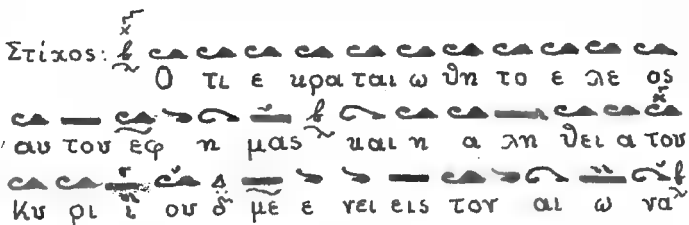 Στίχος: Ο τι ε κρα ται ω θη το ε λε ος
αυ του εφ η μας και η α λη θει α του
Κυ ρι ι ου δ με ε νει εις τον αι ω να